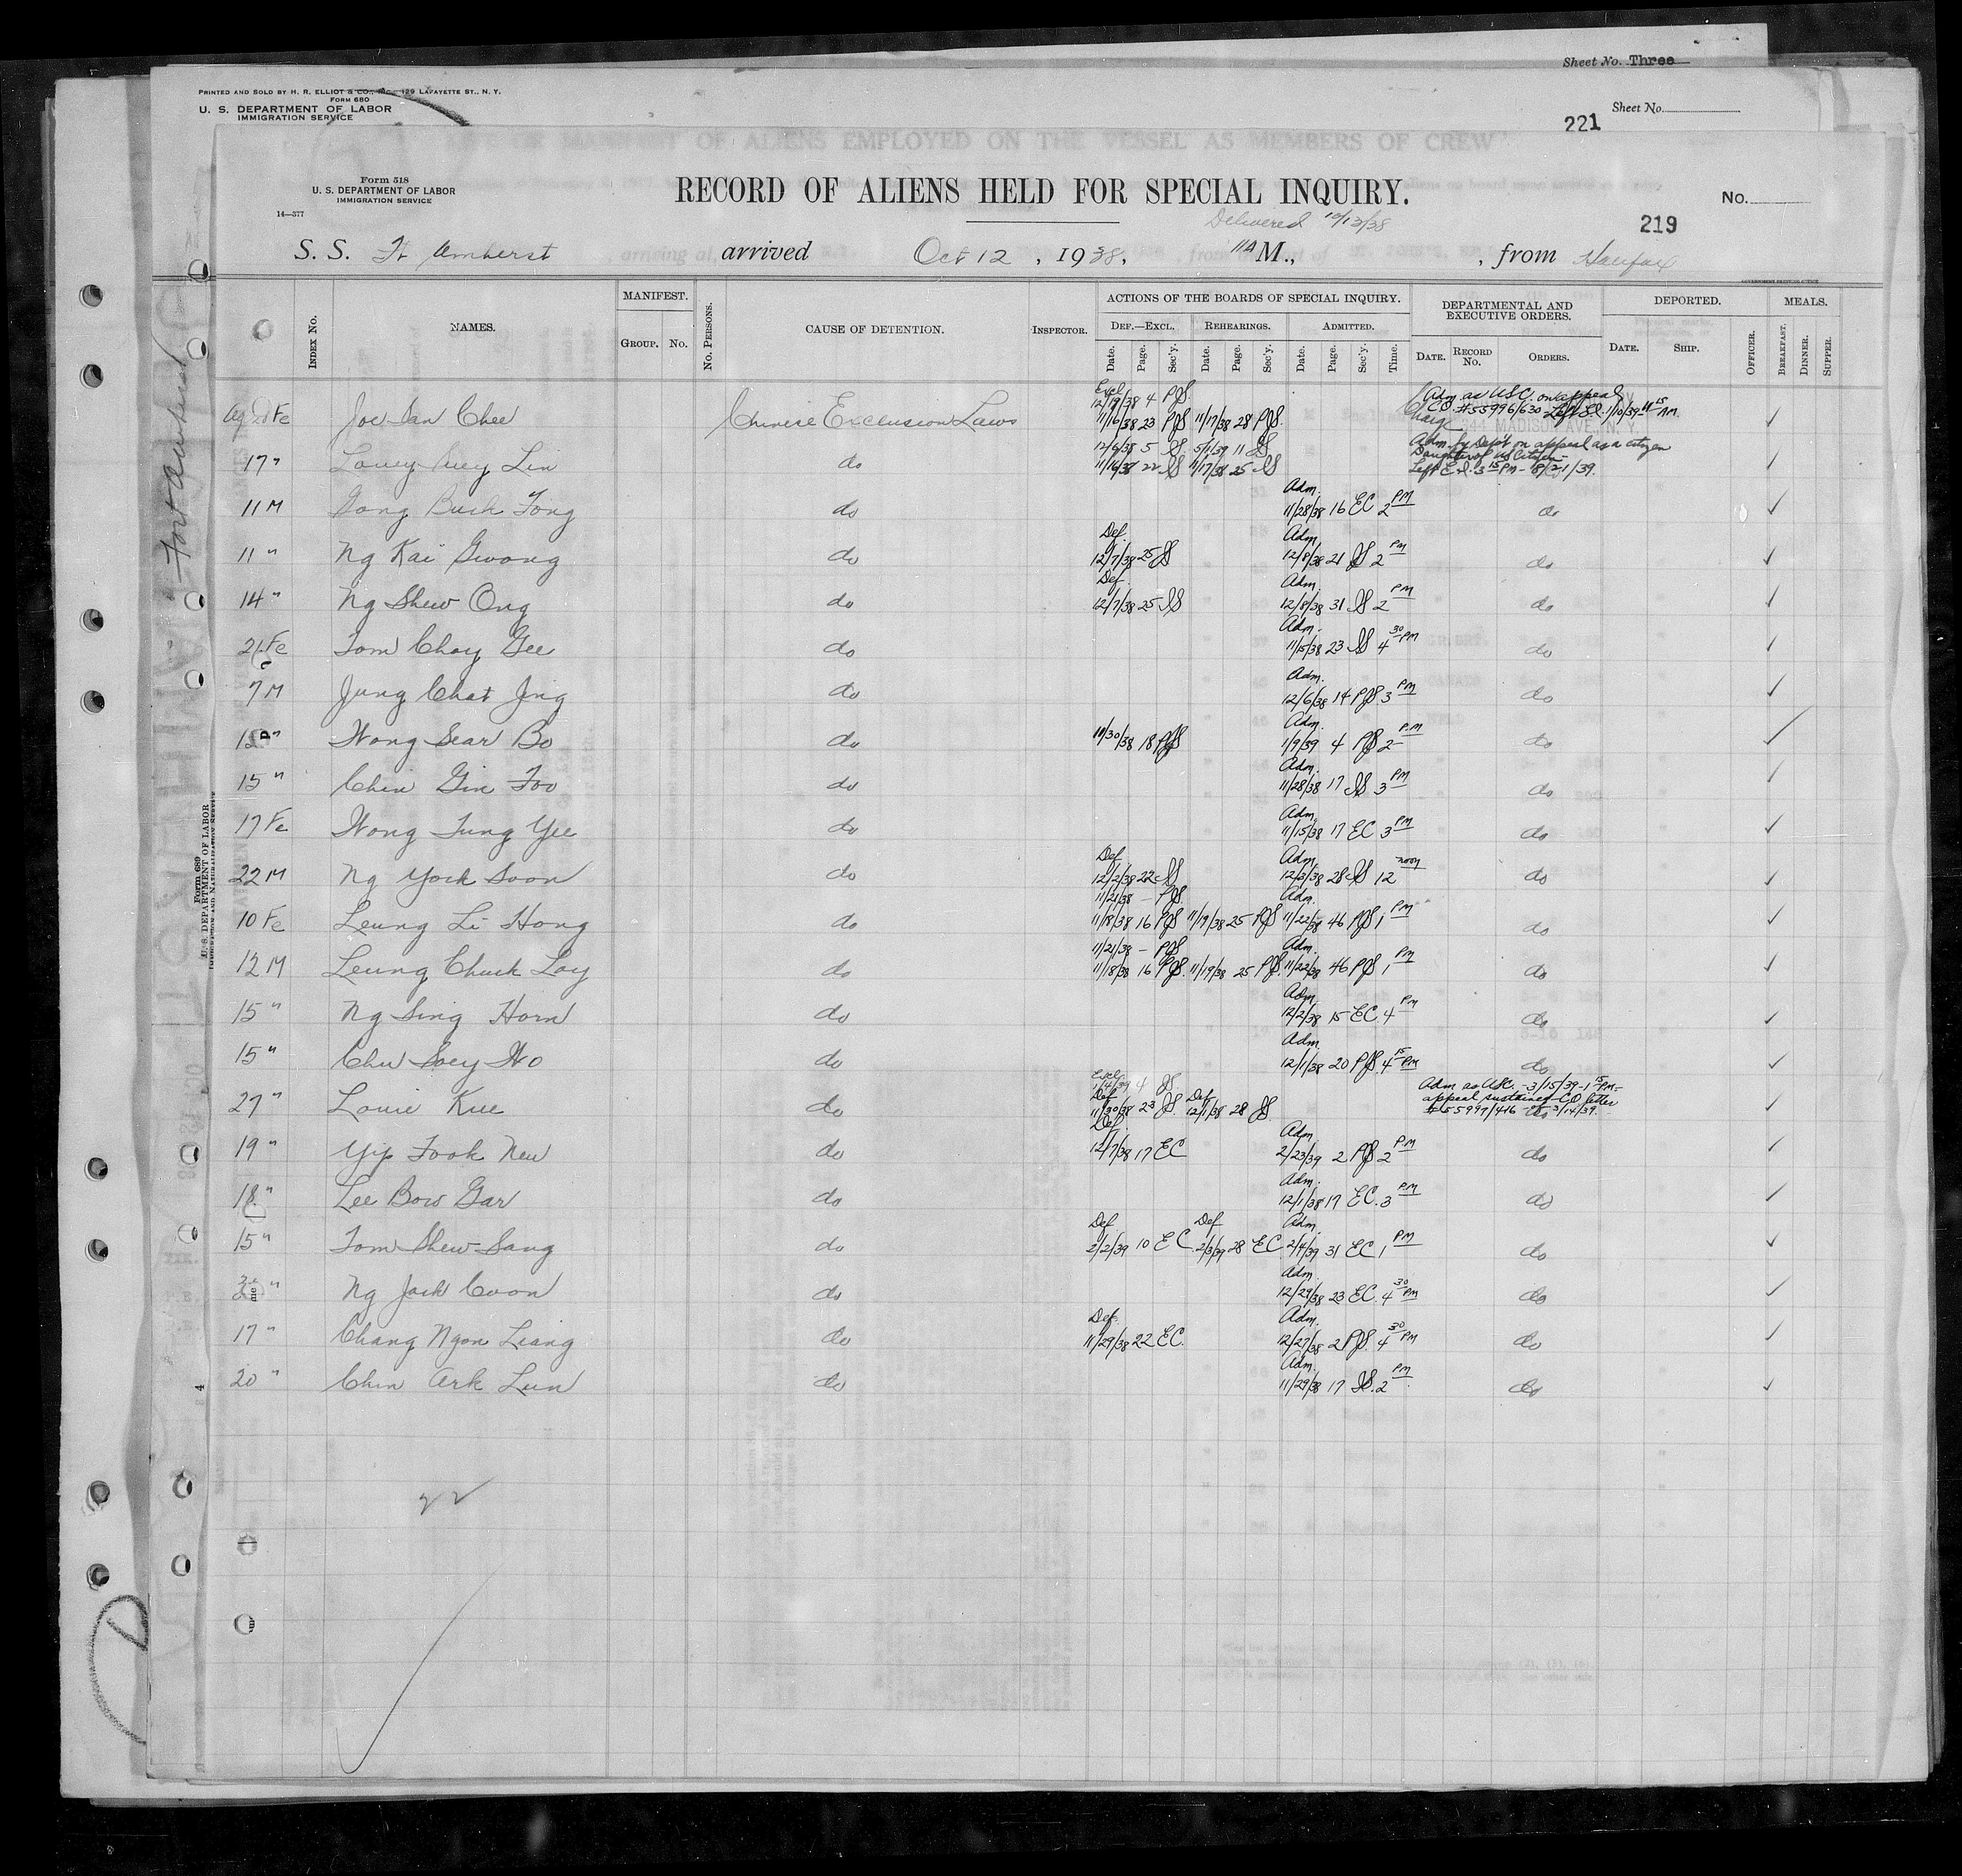 Sheet No. Three
PRINTED AND SOLD BY H. R. ELLIOT & CO., INC., 129 LAFAYETTE ST., N. Y.
FORM 680
U. S. DEPARTMENT OF LABOR
IMMIGRATION SERVICE
Sheet No.
221
MANIFEST OF ALIENS EMPLOYED ON THE VESSEL AS MEMBERS OF CREW
Form 518
U. S. DEPARTMENT OF LABOR
IMMIGRATION SERVICE
14—377
RECORD OF ALIENS HELD FOR SPECIAL INQUIRY.
No.
219
Delivered 10/13/38
S. S. Ft Amherst arrived Oct 12, 1938, 11A M., , from Halifax
INDEX No. NAMES. MANIFEST. GROUP. No. No. PERSONS. CAUSE OF DETENTION. INSPECTOR. ACTIONS OF THE BOARDS OF SPECIAL INQUIRY. DEF.—EXCL. REHEARINGS. ADMITTED. DEPARTMENTAL AND EXECUTIVE ORDERS. DEPORTED. MEALS.
Date. Page. Sec'y. Date. Page. Sec'y. Date. Page. Sec'y. Time. DATE. RECORD No. ORDERS. DATE. SHIP. OFFICER. BREAKFAST. DINNER. SUPPER.
Excl. 12/19/38 4 PJS. Adm as USC. on appeal
Fe Joe Dan Chee Chinese Exclusion Laws 11/16/38 23 PJS 11/17/38 28 PJS. CO #55996/630 Left E.I. 1/10/39 11 15 AM.
12/6/38 5 JS. 5/1/39 11 JS Adm. by Dep't on appeal as a citizen
Daughter of US Citizen
17 " Louey Suey Lin do 11/16/38 22 JS 11/17/38 25 JS Left E.I. 3 15 PM - 8/21/39.
11 M Gong Buck Fong do Adm. 11/28/38 16 EC 2 PM do ✓
11 " Ng Kai Gwong do Def. 12/7/38 25 JS Adm. 12/8/38 21 JS 2 PM do ✓
14 " Ng Shew Ong do Def. 12/7/38 25 JS Adm. 12/8/38 31 JS 2 PM do ✓
21 Fe Tom Choy Gee do Adm. 11/15/38 23 JS 4 30 PM do ✓
7 M Jung Chat Jing do Adm. 12/6/38 14 PJS. 3 PM do ✓
12 " Wong Sear Bo do 11/30/38 18 PJS Adm. 1/9/39 4 PJS 2 P.M do ✓
15 " Chin Gin Foo do Adm. 11/28/38 17 JS 3 PM do ✓
17 Fe Wong Tung Yee do Adm. 11/15/38 17 EC 3 PM do ✓
22 M Ng York Soon do Def. 12/2/38 22 JS Adm. 12/3/38 28 JS 12 noon do ✓
11/21/38 — PJS. Adm.
10 Fe Leung Li Hong do 11/18/38 16 PJS 11/19/38 25 PJS 11/22/38 46 PJS 1 PM do ✓
11/21/38 — PJS Adm.
12 M Leung Chuck Loy do 11/18/38 16 PJS. 11/19/38 25 PJS. 11/22/38 46 PJS 1 PM do ✓
15 " Ng Sing Horn do Adm. 12/2/38 15 EC 4 PM do ✓
15 " Chu Soey Wo do Adm. 12/1/38 20 PJS. 4 15 PM do ✓
Excl. 1/4/39 4 JS. Adm as USC. - 3/15/39 - 1 15 PM -
Def Def appeal sustained CO letter
27 " Louie Kue do 11/30/38 23 JS 12/1/38 28 JS #55997/416 3/14/39.
19 " Yip Fook New do Def. 12/7/38 17 EC Adm. 2/23/39 2 PJS 2 PM do ✓
18 " Lee Bow Gar do Adm. 12/1/38 17 EC. 3 PM do ✓
15 " Tom Shew Sang do Def. 2/2/39 10 EC Def 2/3/39 28 EC Adm. 2/4/39 31 EC 1 PM do ✓
" Ng Jack Coon do Adm. 12/29/38 23 EC. 4 30 PM do ✓
17 " Chang Ngon Liang do Def. 11/29/38 22 EC. Adm. 12/27/38 2 PJS. 4 30 PM do ✓
20 " Chin Ark Lun do Adm. 11/29/38 17 JS. 2 PM do ✓
22
Fort Amherst
Form 689
U. S. DEPARTMENT OF LABOR
D